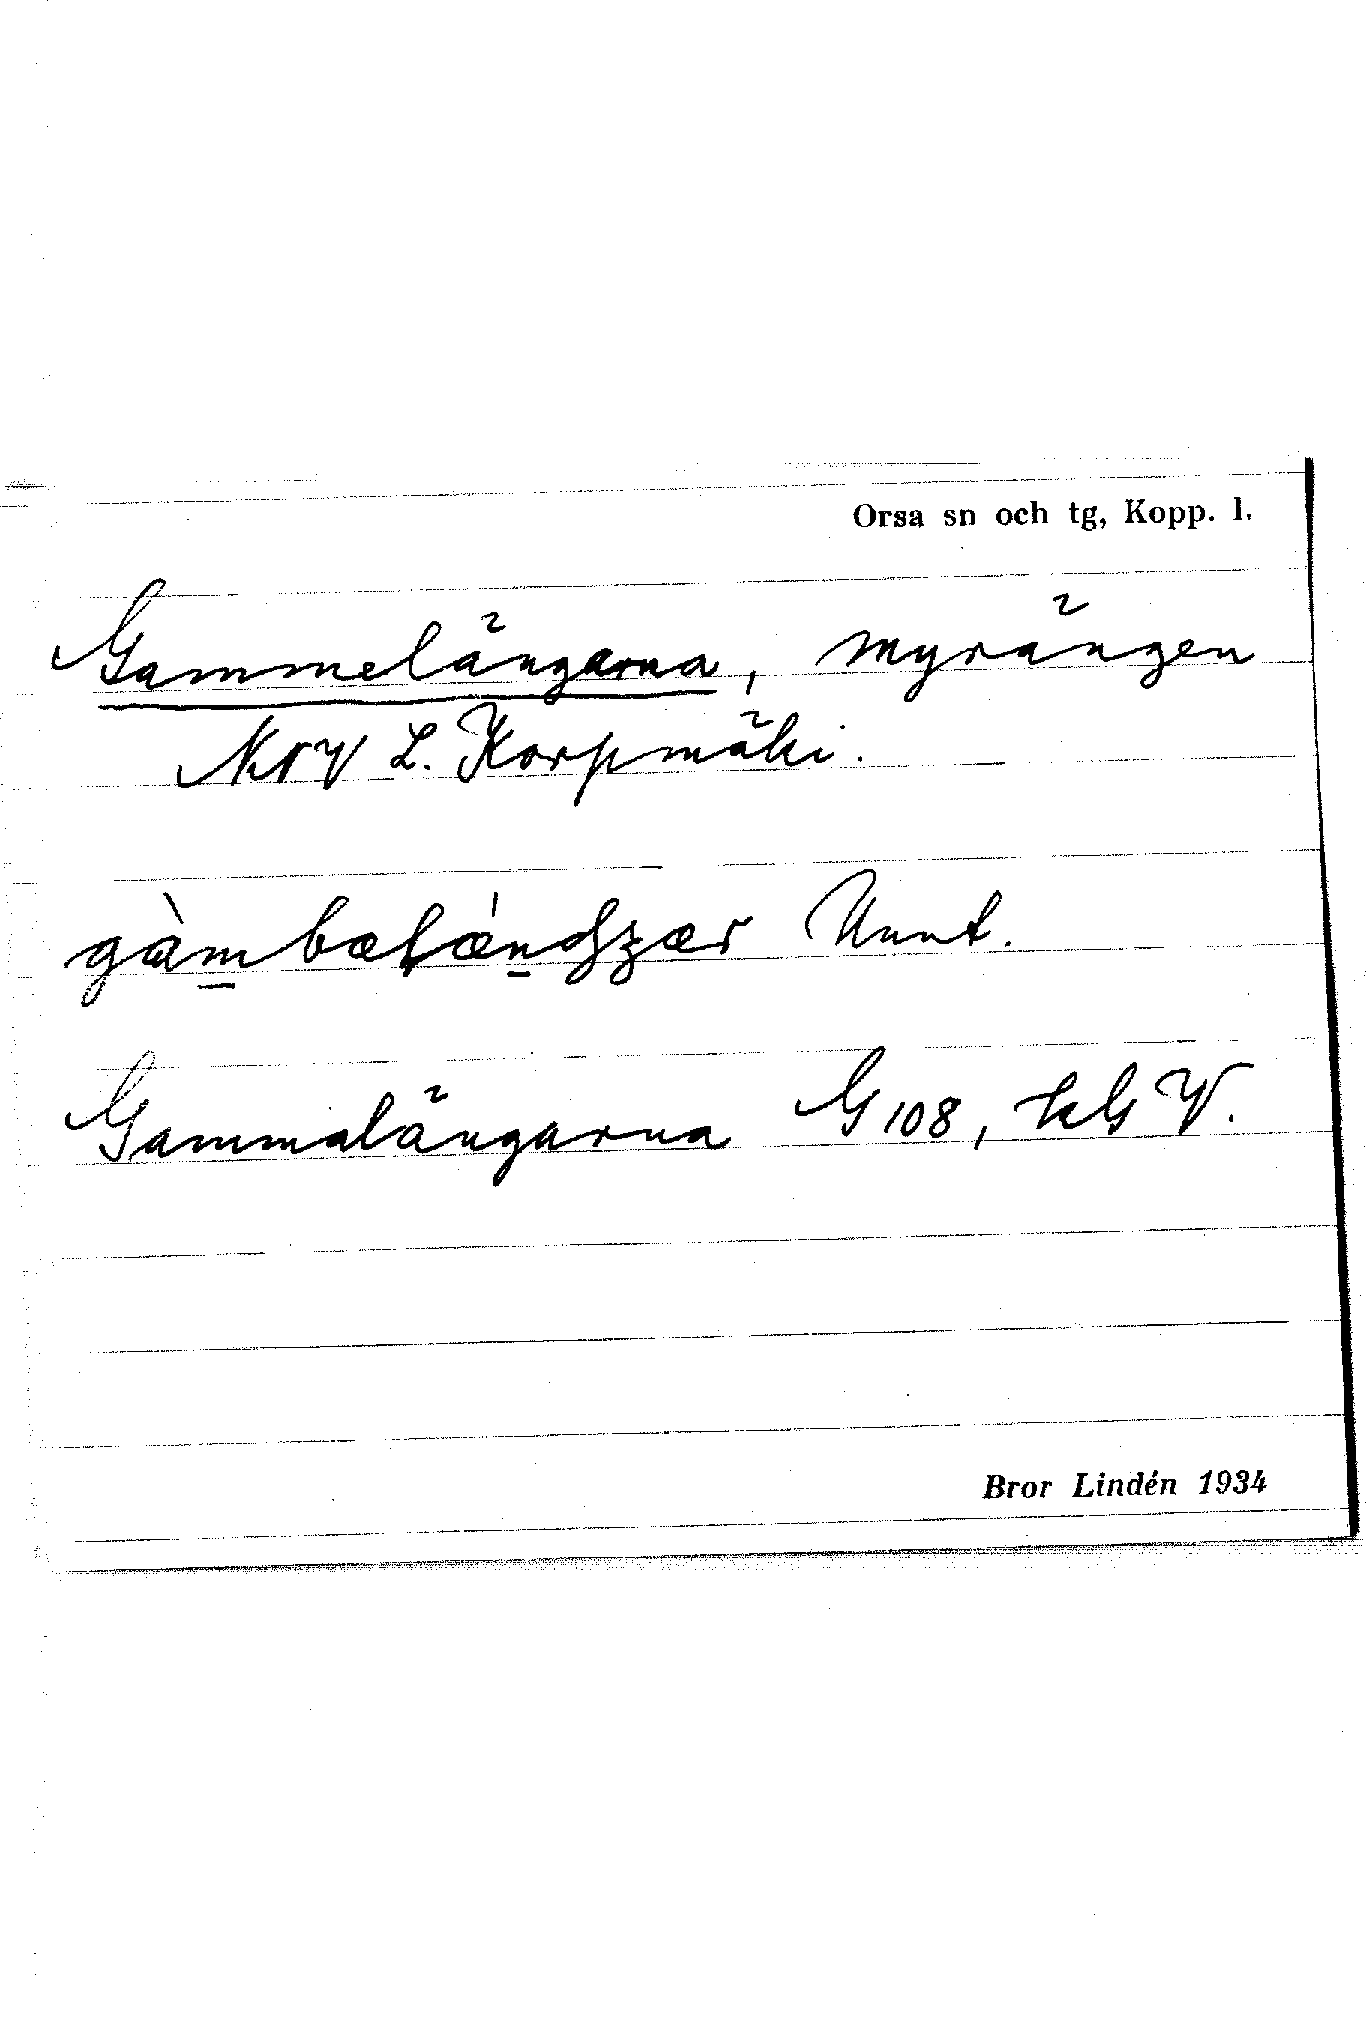 Orsa sn och tg, Kopp. l.
Gammelängarna, myrängen
NNV L. Korpmäki.
Unnt.
Gammalängarna G 108, kG V.
Bror Lindén 1934